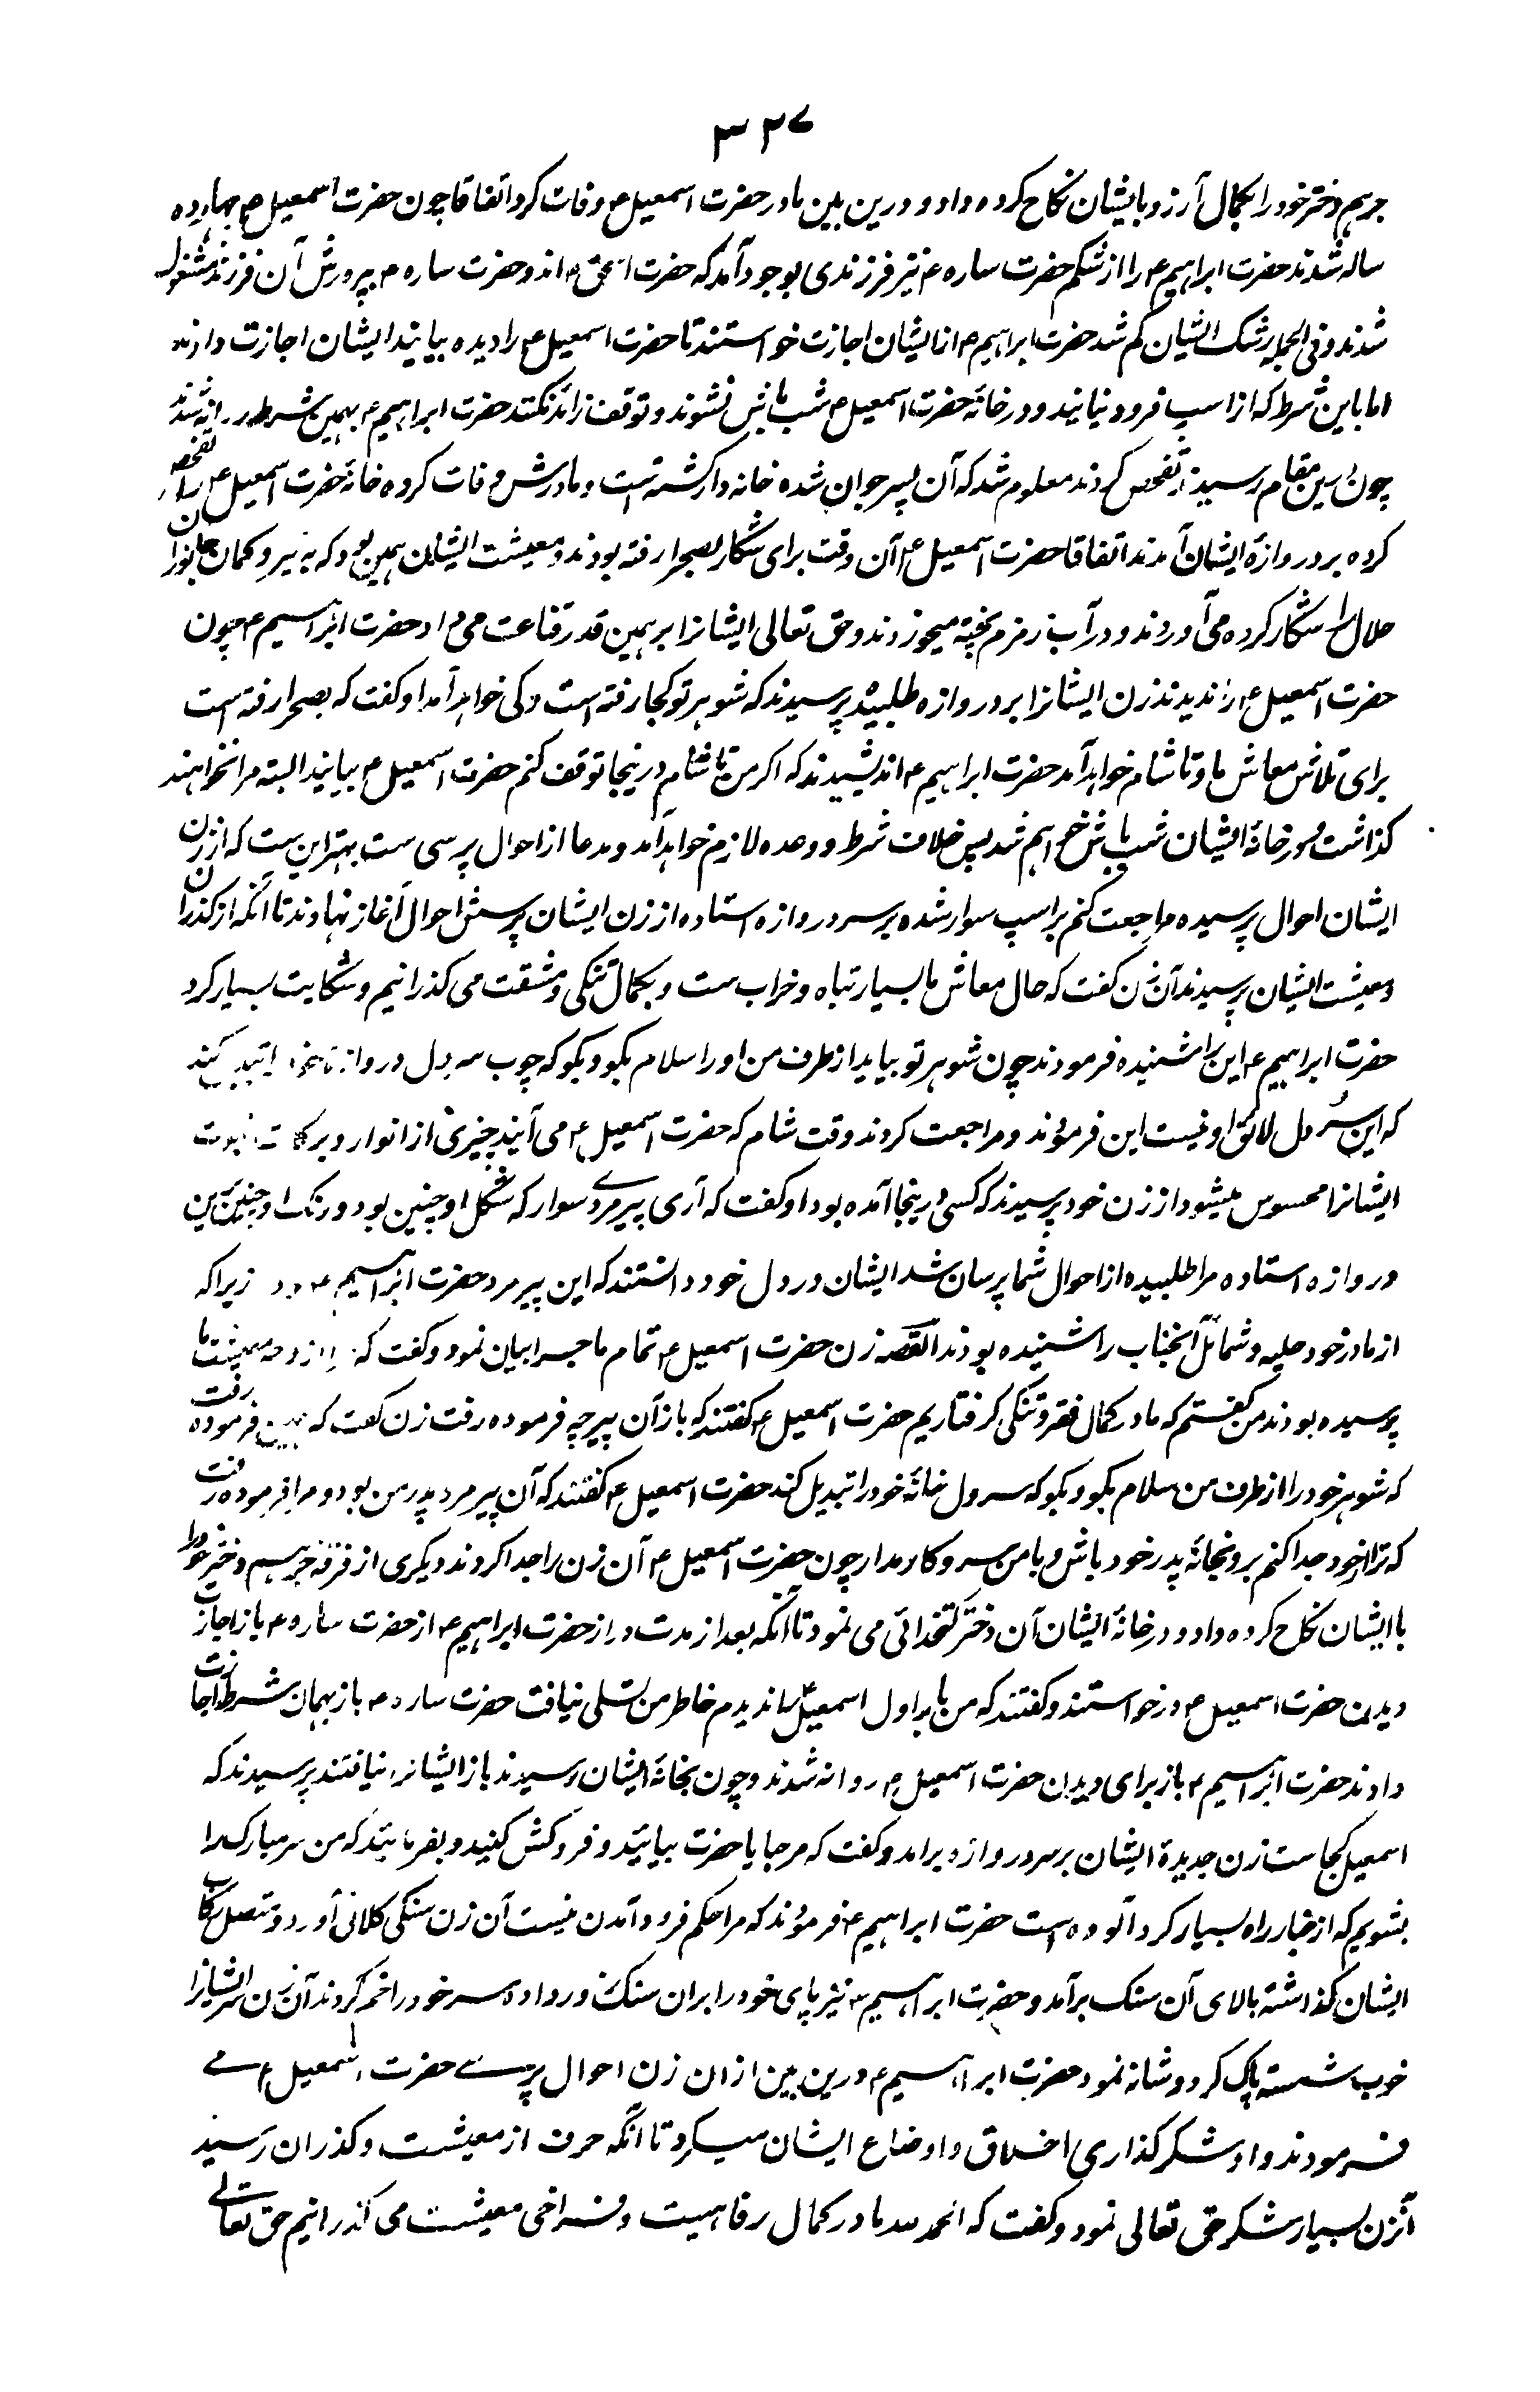 ۳۲۷
جرهم دختر خود را بکمال آرزو بایشان نکاح کرده داد و درین بین مادر حضرت اسمعیل ۴ وفات کرد اتفاقا چون حضرت اسمعیل ۴ چهارده
ساله شدند حضرت ابراهیم ۴ را از شکم حضرت ساره ۴ نیز فرزندی بوجود آمد که حضرت اسحق ۴ اند و حضرت ساره ۴ بپرورش آن فرزند مشغول
شدند و فی الجمله رشک ایشان کم شد حضرت ابراهیم ۴ از ایشان اجازت خواستند تا حضرت اسمعیل ۴ را دیده بیایند ایشان اجازت دادند
اما باین شرط که از اسپ فرود نیایند و در خانهٔ حضرت اسمعیل ۴ شب باش نشوند و توقف زائد نکنند حضرت ابراهیم ۴ بهمین شرط روانه شدند
چون باین مقام رسیدند تفحص کردند معلوم شد که آن پسر جوان شده خانه دار گشته است و مادرش وفات کرده خانهٔ حضرت اسمعیل ۴ را تفحص
کرده بر دروازهٔ ایشان آمدند اتفاقا حضرت اسمعیل ۴ آن وقت برای شکار بصحرا رفته بودند و معیشت ایشان همین بود که به تیر و کمان جانوران
حلال را شکار کرده می آوردند و در آب زمزم پخته میخوردند و حق تعالی ایشانرا بر همین قدر قناعت می داد حضرت ابراهیم ۴ چون
حضرت اسمعیل ۴ را ندیدند زن ایشانرا بر دروازه طلبیده پرسیدند که شوهر تو کجا رفته است و کی خواهد آمد او گفت که بصحرا رفته است
برای تلاش معاش ما و تا شام خواهد آمد حضرت ابراهیم ۴ اندیشیدند که اگر من تا شام درینجا توقف کنم حضرت اسمعیل ۴ بیایند البته مرا نخواهند
گذاشت و در خانهٔ ایشان شب باش خواهم شد پس خلاف شرط و وعده لازم خواهد آمد و مدعا از احوال پرسی ست بهتر این ست که از زن
ایشان احوال پرسیده مراجعت کنم بر اسپ سوار شده بر سر دروازه استاده از زن ایشان پرسش احوال آغاز نهادند تا آنکه از گذران
و معیشت ایشان پرسیدند آن زن گفت که حال معاش ما بسیار تباه و خراب ست و بکمال تنگی و مشقت می گذرانیم و شکایت بسیار کرد
حضرت ابراهیم ۴ این را شنیده فرمودند چون شوهر تو بیاید از طرف من او را سلام بگو و بگو که چوب سردل دروازه خود را تبدیل کند
که این سردل لائق او نیست این فرمودند و مراجعت کردند وقت شام که حضرت اسمعیل ۴ می آیند چیزی از انوار و برکات نبوت
ایشانرا محسوس میشود از زن خود پرسیدند که کسی درینجا آمده بود او گفت که آری پیرمردی سوار که شکل او چنین بود و رنگ او چنین برین
دروازه استاده مرا طلبیده از احوال شما پرسان شد ایشان در دل خود دانستند که این پیر مرد حضرت ابراهیم ۴ بود زیرا که
از مادر خود حلیه و شمائل آنجناب را شنیده بودند القصه زن حضرت اسمعیل ۴ تمام ماجرا بیان نمود و گفت که از وجه معیشت ما
پرسیده بودند من گفتم که ما در کمال فقر و تنگی گرفتاریم حضرت اسمعیل ۴ گفتند که باز آن پیر چه فرموده رفت زن گفت که همین فرموده رفت
که شوهر خود را از طرف من سلام بگو و بگو که سردل خانهٔ خود را تبدیل کند حضرت اسمعیل ۴ گفتند که آن پیر مرد پدر من بود و مرا فرموده رفت
که ترا از خود جدا کنم برو بخانهٔ پدر خود باش و با من سر و کار مدار چون حضرت اسمعیل ۴ آن زن را جدا کردند دیگری از فرقه جرهم دختر خود را
با ایشان نکاح کرده داد و در خانهٔ ایشان آن دختر کتخدائی می نمود تا آنکه بعد از مدت دراز حضرت ابراهیم ۴ از حضرت ساره ۴ باز اجازت
دیدن حضرت اسمعیل ۴ درخواستند و گفتند که من بار اول اسمعیل را ندیدم خاطر من تسلی نیافت حضرت ساره ۴ باز بهمان شرط اجازت
دادند حضرت ابراهیم ۴ باز برای دیدن حضرت اسمعیل ۴ روانه شدند و چون بخانهٔ ایشان رسیدند باز ایشانرا نیافتند پرسیدند که
اسمعیل کجاست زن جدیدهٔ ایشان بر سر دروازه برآمد و گفت که مرحبا یا حضرت بیائید و فروکش کنید و بفرمائید که من سر مبارک را
بشویم که از غبار راه بسیار گرد آلوده است حضرت ابراهیم ۴ فرمودند که مرا حکم فرود آمدن نیست آن زن سنگی کلانی آورد و متصل رکاب
ایشان گذاشته بالای آن سنگ برآمد و حضرت ابراهیم ۴ نیز پای خود را بران سنگ زور داده سر خود را خم کردند آن زن سر ایشانرا
خوب شسته پاک کرد و شانه نمود حضرت ابراهیم ۴ درین بین ازان زن احوال پرسی حضرت اسمعیل ۴ می
فرمودند و او شکر گذاری اخلاق و اوضاع ایشان میکرد تا آنکه حرف از معیشت و گذران رسید
آنزن بسیار شکر حق تعالی نمود و گفت که الحمد لله ما در کمال رفاهیت و فراخی معیشت می گذرانیم حق تعالی